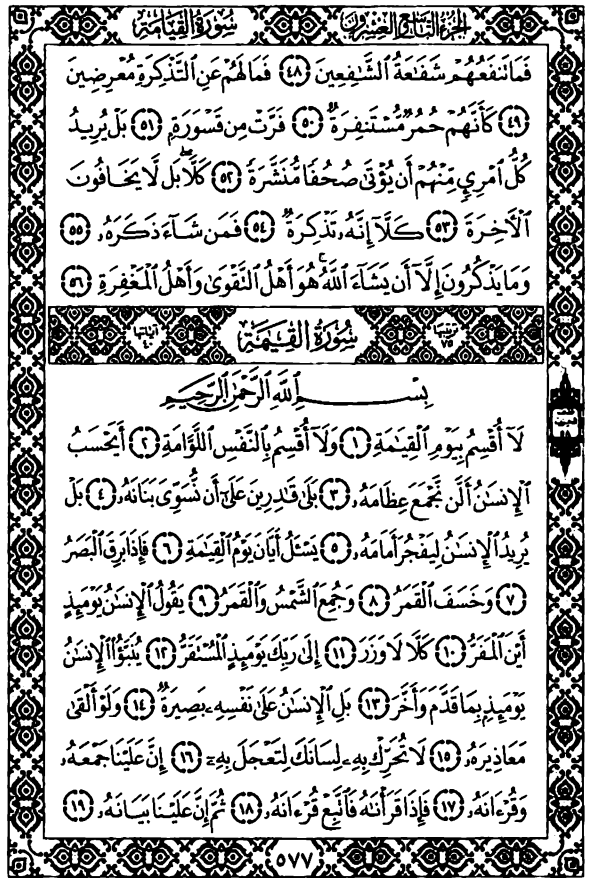 الجزء التاسع والعشرون
سورة القيامة
فَمَا تَنفَعُهُمْ شَفَاعَةُ الشَّافِعِينَ ﴿٤٨﴾ فَمَا لَهُمْ عَنِ التَّذْكِرَةِ مُعْرِضِينَ
﴿٤٩﴾ كَأَنَّهُمْ حُمُرٌ مُّسْتَنفِرَةٌ ﴿٥٠﴾ فَرَّتْ مِن قَسْوَرَةٍ ﴿٥١﴾ بَلْ يُرِيدُ
كُلُّ امْرِئٍ مِّنْهُمْ أَن يُؤْتَىٰ صُحُفًا مُّنَشَّرَةً ﴿٥٢﴾ كَلَّا ۖ بَل لَّا يَخَافُونَ
الْآخِرَةَ ﴿٥٣﴾ كَلَّا إِنَّهُ تَذْكِرَةٌ ﴿٥٤﴾ فَمَن شَاءَ ذَكَرَهُ ﴿٥٥﴾
وَمَا يَذْكُرُونَ إِلَّا أَن يَشَاءَ اللَّهُ ۚ هُوَ أَهْلُ التَّقْوَىٰ وَأَهْلُ الْمَغْفِرَةِ ﴿٥٦﴾
ترتيبها ٧٥ سُورَةُ الْقِيَامَةِ آياتها ٤٠
بِسْمِ اللَّهِ الرَّحْمَٰنِ الرَّحِيمِ
لَا أُقْسِمُ بِيَوْمِ الْقِيَامَةِ ﴿١﴾ وَلَا أُقْسِمُ بِالنَّفْسِ اللَّوَّامَةِ ﴿٢﴾ أَيَحْسَبُ
الْإِنسَانُ أَلَّن نَّجْمَعَ عِظَامَهُ ﴿٣﴾ بَلَىٰ قَادِرِينَ عَلَىٰ أَن نُّسَوِّيَ بَنَانَهُ ﴿٤﴾ بَلْ
يُرِيدُ الْإِنسَانُ لِيَفْجُرَ أَمَامَهُ ﴿٥﴾ يَسْأَلُ أَيَّانَ يَوْمُ الْقِيَامَةِ ﴿٦﴾ فَإِذَا بَرِقَ الْبَصَرُ
﴿٧﴾ وَخَسَفَ الْقَمَرُ ﴿٨﴾ وَجُمِعَ الشَّمْسُ وَالْقَمَرُ ﴿٩﴾ يَقُولُ الْإِنسَانُ يَوْمَئِذٍ
أَيْنَ الْمَفَرُّ ﴿١٠﴾ كَلَّا لَا وَزَرَ ﴿١١﴾ إِلَىٰ رَبِّكَ يَوْمَئِذٍ الْمُسْتَقَرُّ ﴿١٢﴾ يُنَبَّأُ الْإِنسَانُ
يَوْمَئِذٍ بِمَا قَدَّمَ وَأَخَّرَ ﴿١٣﴾ بَلِ الْإِنسَانُ عَلَىٰ نَفْسِهِ بَصِيرَةٌ ﴿١٤﴾ وَلَوْ أَلْقَىٰ
مَعَاذِيرَهُ ﴿١٥﴾ لَا تُحَرِّكْ بِهِ لِسَانَكَ لِتَعْجَلَ بِهِ ﴿١٦﴾ إِنَّ عَلَيْنَا جَمْعَهُ
وَقُرْآنَهُ ﴿١٧﴾ فَإِذَا قَرَأْنَاهُ فَاتَّبِعْ قُرْآنَهُ ﴿١٨﴾ ثُمَّ إِنَّ عَلَيْنَا بَيَانَهُ ﴿١٩﴾
٥٧٧